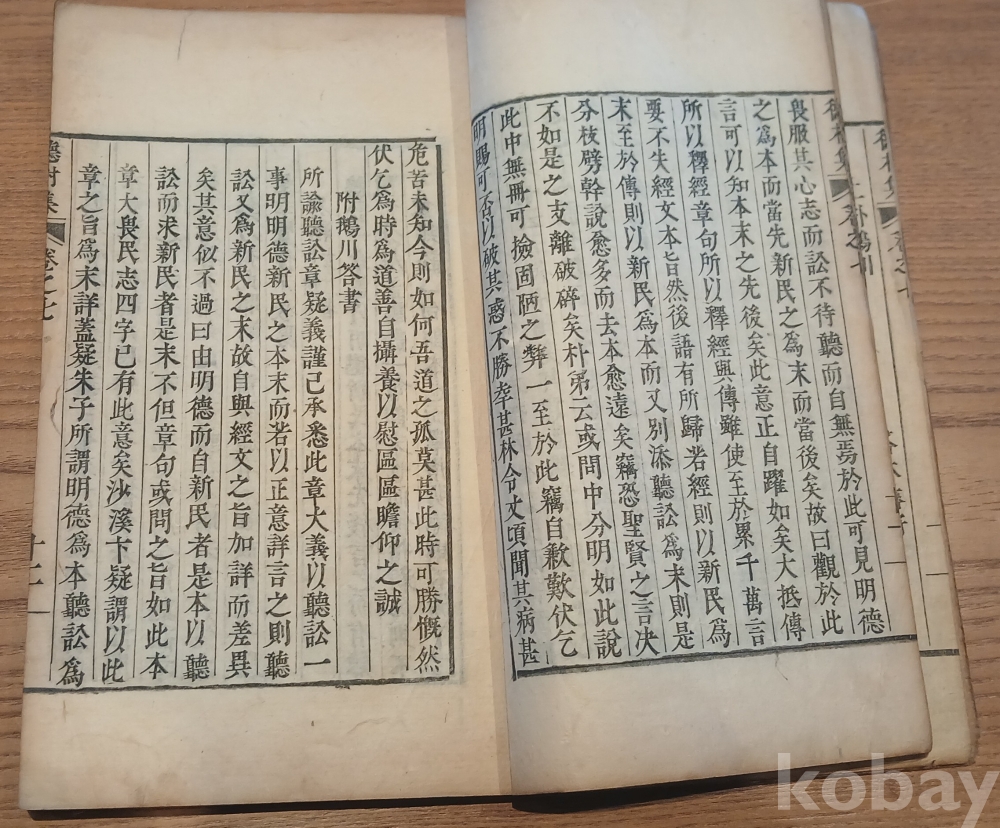 畏服其心志而訟不待聽而自無焉於此可見明德
之爲本而當先新民之爲末而當後矣故曰觀於此
言可以知本末之先後矣此意正自躍如矣大抵傳
所以釋經章句所以釋經與傳雖使至於累千萬言
要不失經文本旨然後語有所歸若經則以新民爲
末至於傳則以新民爲本而又別添聽訟爲末則是
分枝劈幹說愈多而去本愈遠矣竊恐聖賢之言决
不如是之支離破碎矣朴弟云或問中分明如此說
此中無冊可撿固陋之弊一至於此竊自歉歎伏乞
明賜可否以破其惑不勝幸甚林令丈頃聞其病甚
危苦未知今則如何吾道之孤莫甚此時可勝慨然
伏乞爲時爲道善自攝養以慰區區瞻仰之誠
附鵝川答書
所諭聽訟章疑義謹已承悉此章大義以聽訟一
事明明德新民之本末而若以正意詳言之則聽
訟又爲新民之末故自與經文之旨加詳而差異
矣其意似不過曰由明德而自新民者是本以聽
訟而求新民者是末不但章句或問之旨如此本
章大畏民志四字已有此意矣沙溪卞疑謂以此
章之旨爲末詳蓋疑朱子所謂明德爲本聽訟爲
集 卷之七
十二
kobay